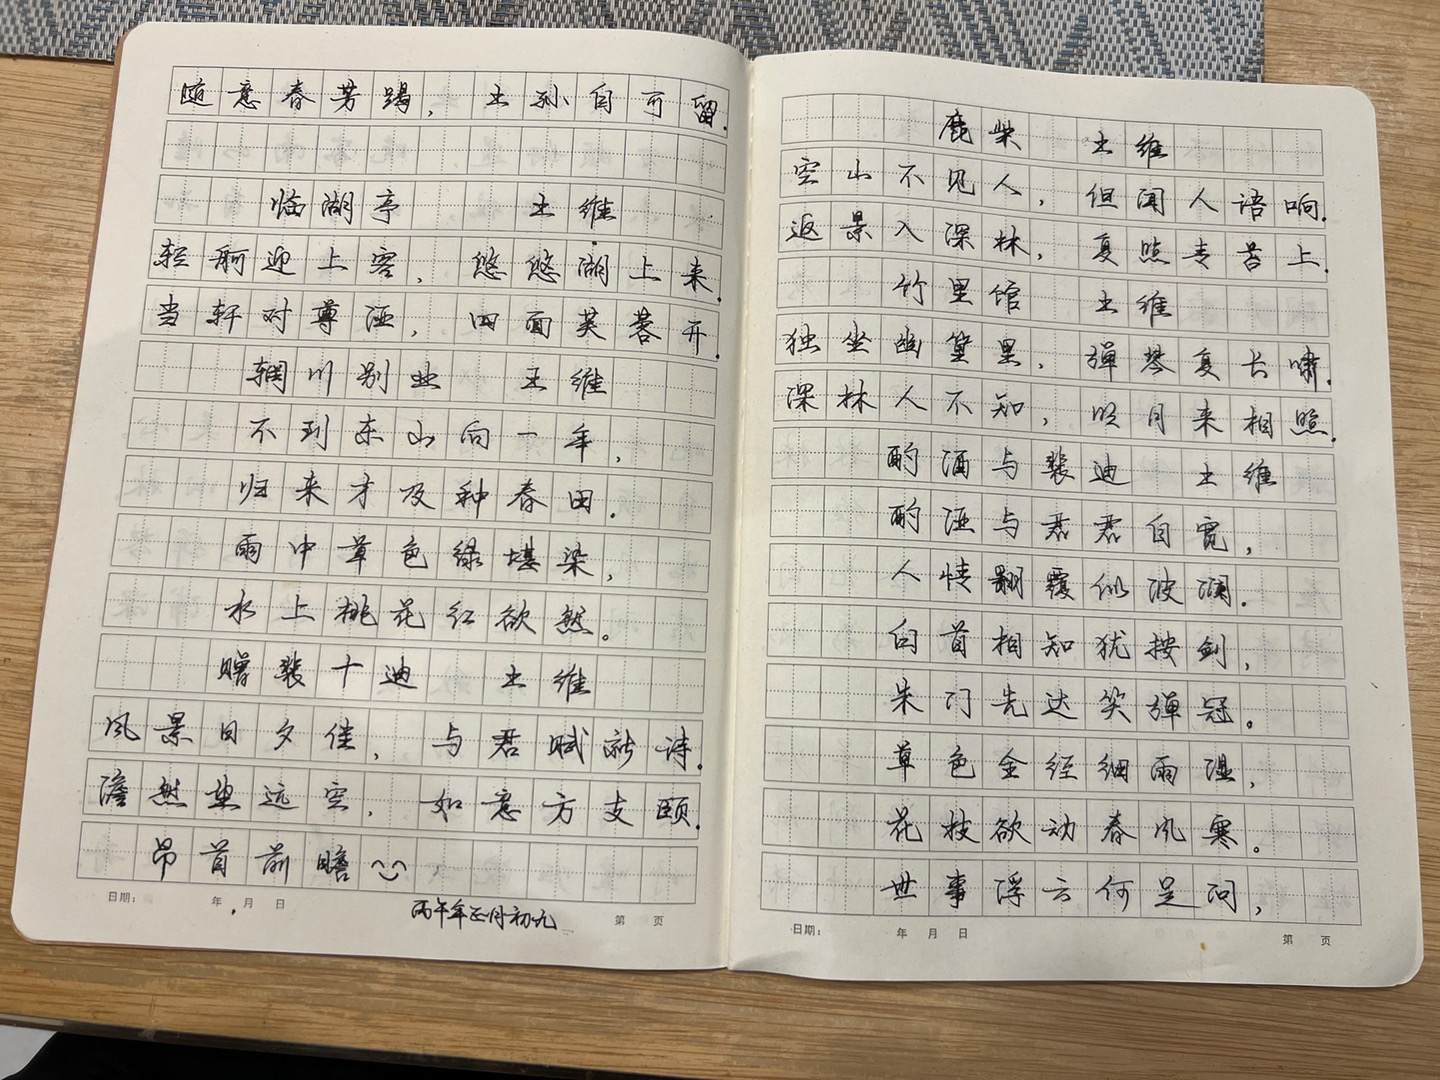 随意春芳歇，王孙自可留.
临湖亭 王维
轻舸迎上客，悠悠湖上来.
当轩对尊酒，四面芙蓉开.
辋川别业 王维
不到东山向一年，
归来才及种春田.
雨中草色绿堪染，
水上桃花红欲然。
赠裴十迪 王维
风景日夕佳，与君赋新诗.
澹然望远空，如意方支颐.
昂首前瞻
日期： 年 月 日
丙午年正月初九
第 页
鹿柴 王维
空山不见人，但闻人语响.
返景入深林，复照青苔上.
竹里馆 王维
独坐幽篁里，弹琴复长啸.
深林人不知，明月来相照.
酌酒与裴迪 王维
酌酒与君君自宽，
人情翻覆似波澜.
白首相知犹按剑，
朱门先达笑弹冠。
草色全经细雨湿，
花枝欲动春风寒。
世事浮云何足问，
日期： 年 月 日
第 页